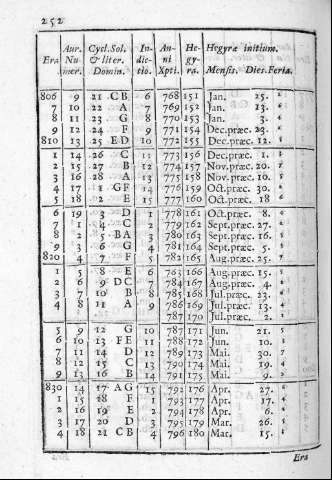 252
Aur. Cycl. Sol. In- An- He- Hegyræ initium.
Era Nu- & liter. dic- ni gy-
mer. Domin. tio. Xpti. ra. Mensis. Dies. Feria.
806 9 21 C B 6 768 151 Jan. 25.
7 10 22 A 7 769 152 Jan. 13.
8 11 23 G 8 770 153 Jan. 3.
9 12 24 F 9 771 154 Dec.præc. 23.
810 13 25 ED 10 772 155 Dec.præc. 12.
1 14 26 C 11 773 156 Dec.præc. 1.
2 15 27 B 12 774 157 Nov.præc. 20.
3 16 28 A 13 775 158 Nov.præc. 10.
4 17 1 GF 14 776 159 Oct.præc. 30.
5 18 2 E 15 777 160 Oct.præc. 18
6 19 3 D 1 778 161 Oct.præc. 8.
7 1 4 C 2 779 162 Sept.præc. 27.
8 2 5 BA 3 780 163 Sept.præc. 16.
9 3 6 G 4 781 164 Sept.præc. 5.
820 4 7 F 5 782 165 Aug.præc. 25.
1 5 8 E 6 783 166 Aug.præc. 15.
2 6 9 DC 7 784 167 Aug.præc. 4.
3 7 10 B 8 785 168 Jul.præc. 23.
4 8 11 A 9 786 169 Jul.præc. 13.
787 170 Jul.præc. 2.
5 9 12 G 10 787 171 Jun. 21.
6 10 13 FE 11 788 172 Jun. 10.
7 11 14 D 12 789 173 Mai. 30.
8 12 15 C 13 790 174 Mai. 19.
9 13 16 B 14 791 175 Mai. 9.
830 14 17 AG 15 792 176 Apr. 27.
1 15 18 F 1 793 177 Apr. 17.
2 16 19 E 2 794 178 Apr. 6.
3 17 20 D 3 795 179 Mar. 26.
4 18 21 CB 4 796 180 Mar. 15.
Era